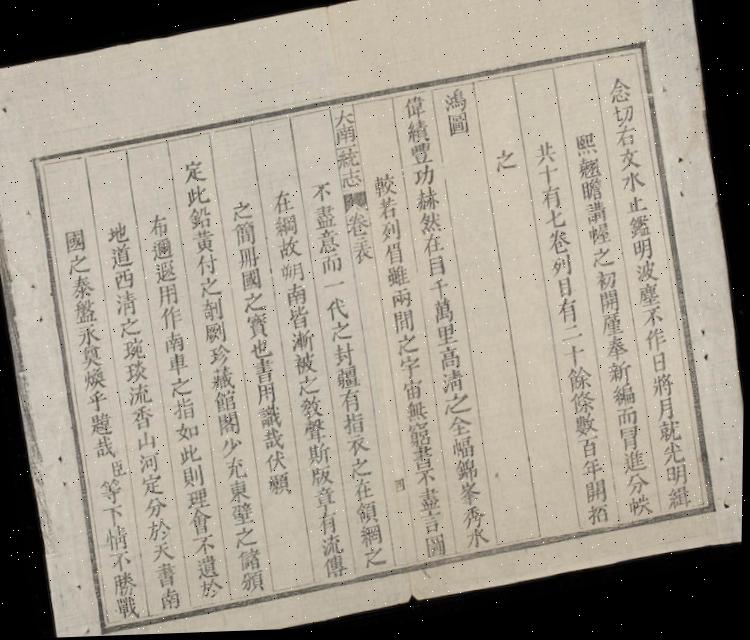 念切右文水止鑑明波塵不作日將月就光明緝
熙翹瞻講幄之初開廑奉新編而冒進分帙
共十有七卷列目有二十餘條數百年開拓
之
鴻圖
偉績豐功赫然在目千萬里高清之全幅錦峯秀水
較若列眉雖兩間之宇宙無窮書不盡言圖
大南一統志 卷首 表 四
不盡意而一代之封疆有指衣之在領網之
在綱故朔南皆漸被之教聲斯版章有流傳
之簡冊國之寶也書用識哉伏願
定此鉛黃付之剞劂珍藏館閣少充東壁之儲頒
布邇遐用作南車之指如此則理會不遺於
地道西清之琬琰流香山河定分於天書南
國之泰盤永奠煥乎韙哉臣等下情不勝戰